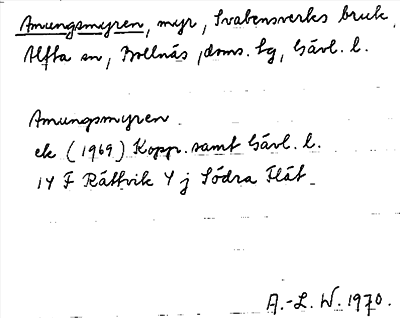 Amungsmyren, myr, Svabensverks bruk,
Alfta sn, Bollnäs doms. sg, Gävl. l.
Amungsmyren.
ek (1969) Kopp. samt Gävl. l.
14 F Rättvik 4 j Södra Flät
A.-L. W. 1970.